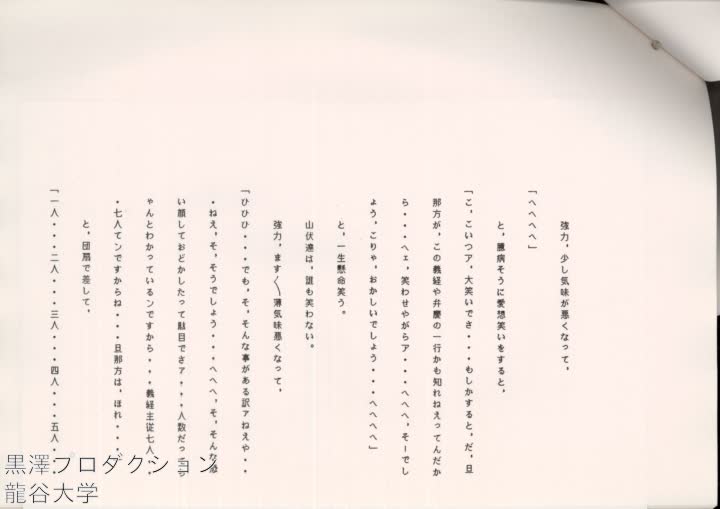 強力、少し気味が悪くなって、
「へへへへ」
と、臆病そうに愛想笑いをすると、
「こ、こいつア、大笑いでさ・・・もしかすると、だ、旦
那方が、この義経や弁慶の一行かも知れねえってんだか
ら・・・へェ、笑わせやがらア・・・へへへ、そーでし
ょう、こりゃ、おかしいでしょう・・・へへへへ」
と、一生懸命笑う。
山伏達は、誰も笑わない。
強力、ます〱薄気味悪くなって、
「ひひひ・・・でも、そ、そんな事がある訳ァねえや・・
・ねえ、そ、そうでしょう・・・へへへ、そ、そんな恐
い顔しておどかしたって駄目でさァ・・・人数だって
ゃんとわかっているンですから・・・義経主従七人・・
・七人テンですからね・・・旦那方は、ほれ・・・
と、団扇で差して、
「一人・・・二人・・・三人・・・四人・・・五人・・
黒澤プロダクション
龍谷大学